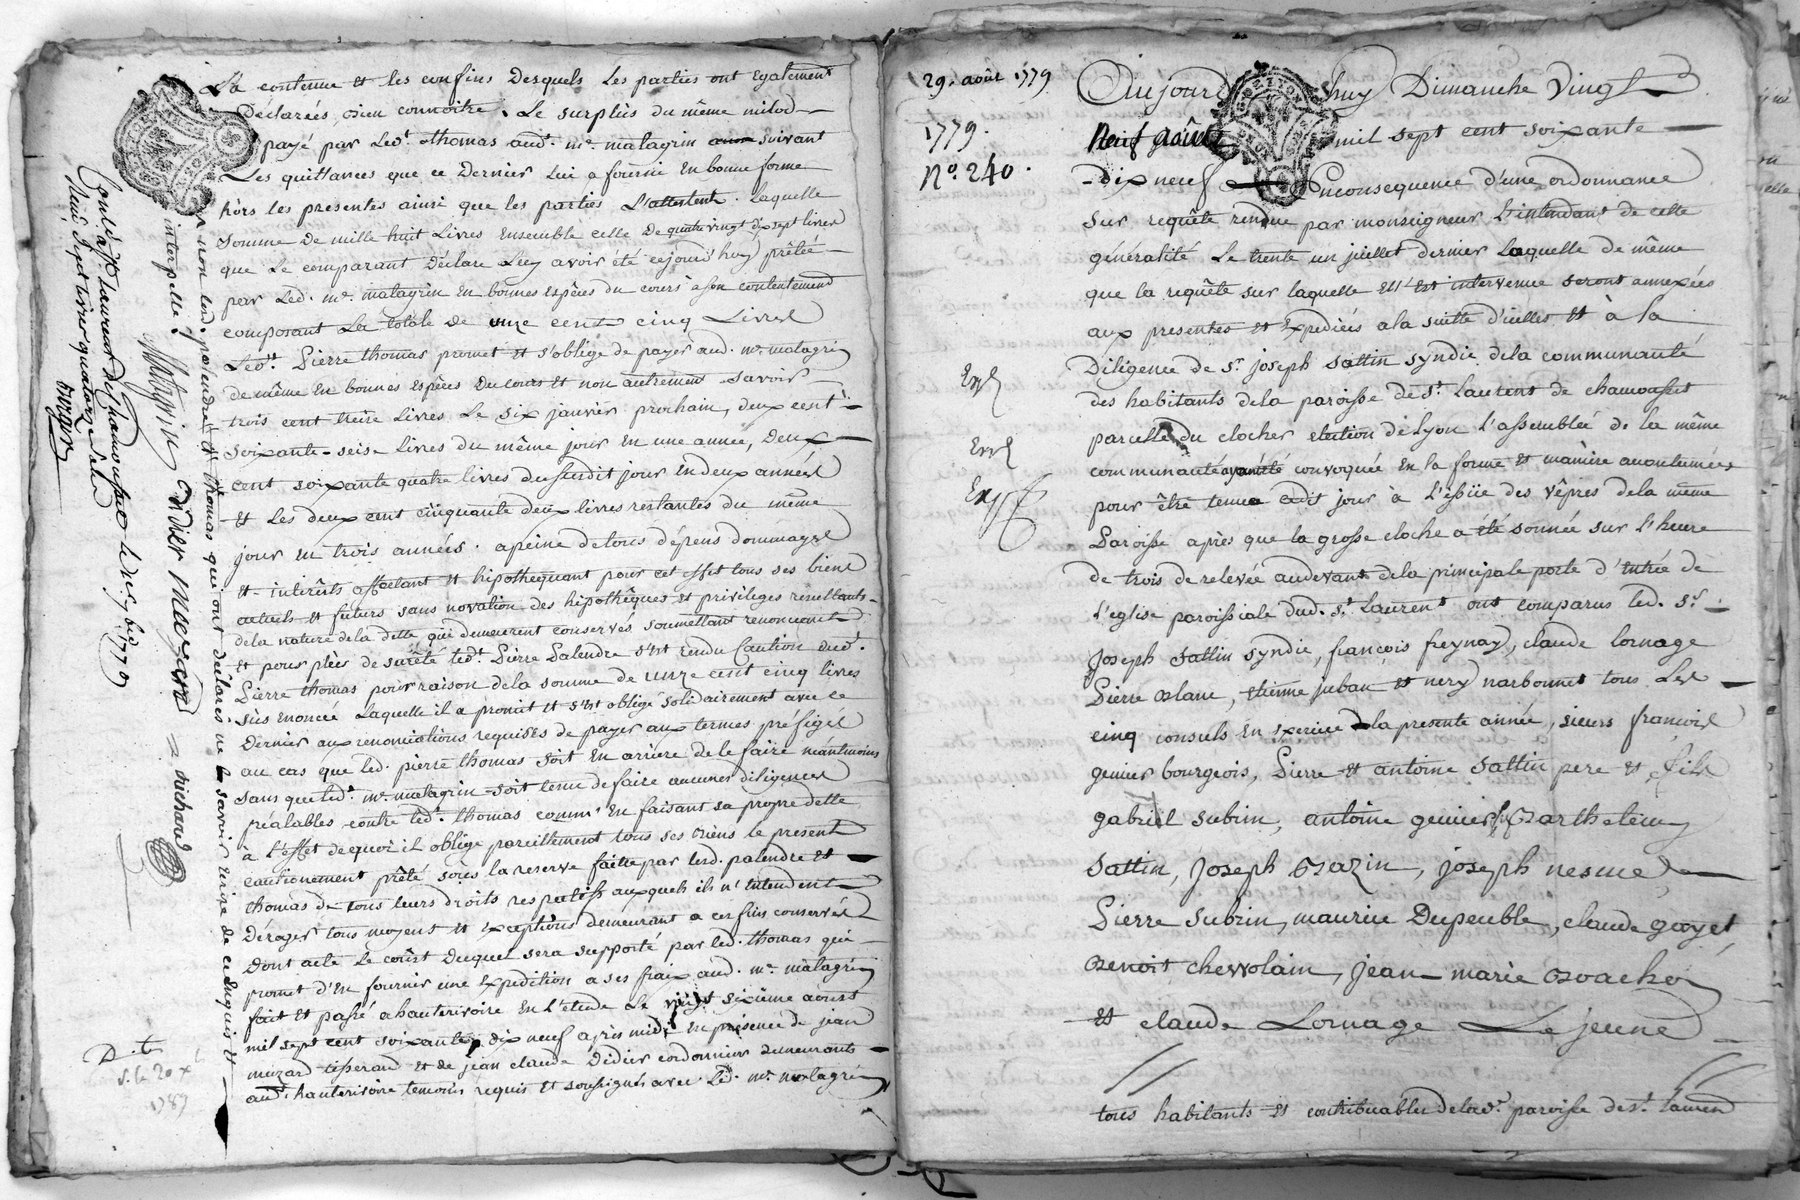 La contenue et les confins desquels les parties ont Egalement
Déclarées bien connoitre. Le surplus du même milod
payé par Led.t thomas aud.t m.e matagrin suivant
Les quittances que ce Dernier Lui a fourni En bonne forme
hors les presentes ainsi que les parties L'attestent. Laquelle
somme De mille huit Livres Ensemble celle De quatre vingt dix sept livres
que Le comparant Déclare Luy avoir été cejourd'huy prêtée
par Led. m.e matagrin En bonnes Espèces du cours à son contentement
composant La totale de onze cents cinq Livres
Led.t Pierre thomas promet et s'oblige de payer aud. m.e matagrin
de même En bonnes Espèces du cours et non autrement savoir
trois cent treize Livres Le six janvier prochain, deux cent
soixante-seize Livres du même jour En une année, Deux
cent soixante quatre livres du susdit jour En deux années
et Les deux cent cinquante deux livres restantes du même
jour En trois années. a peine de tous dépens dommages
et intérêts affectant et hipothequant pour cet effet tous ses biens
actuels et futurs sans novation des hipothêques et privileges resultants
de la nature de la dette qui demeurent conservés soumettant renonceant
et pour plus de sureté led.t Pierre Palendre s'est rendu Caution dud.t
Pierre thomas pour raison de la somme de unze cent cinq livres
sus Enoncée Laquelle il a promit et s'est obligé solidairement avec ce
Dernier aux renonciations requises de payer aux termes préfigés
au cas que led. pierre thomas soit En arriere de le faire néantmoins
sans que led.t m.e matagrin soit tenu de faire aucunes diligences
préalables contre led.t thomas comme En faisant sa propre dette
à l'effet de quoi il oblige pareillement tous ses biens le present
cautionement prêté sous la reserve faitte par lesd. palendre et
thomas de tous leurs droits respectifs auxquels ils n'entendent
Déroger tous moyens et exceptions demeurant a ces fins conservés
Dont acte Le coûst Duquel sera supporté par led. thomas qui
promet d'En fournir une Expedition a ses frais aud. m.e matagrin
fait et passé a hauterivoire En l'etude Le vingt sixième aoust
mil sept cent soixante dix neuf après midi En présence de jean
muzard tisserand et de jean claude Didier cordonnier demeurants
aud.t hauterivoire temoins requis et soussignés avec Led. m.e matagrin
et non lesd. palendre et thomas qui ont déclarés ne savoir ecrire de ce Enquis et
interpellé
Matagrin Didier Muzard richard
Controllé à St Laurent de Chamousset le sept bre 1779
Reçu sept livres quatorze sols
29. août 1779
1779.
N.o 240.
Exp.
Exp.
Exp.
Aujourd'huy Dimanche Vingt
Neuf août mil sept cent soixante
dix neuf Enconsequence d'une ordonnance
sur requête rendue par monseigneur L'intendant de cette
généralité Le trente un juillet dernier Laquelle de même
que la requête sur laquelle Ell'Est intervenue seront annexées
aux presentes et Expediées a la suitte d'icelles et à la
Diligence de S.r joseph Sattin syndic dela communauté
des habitants dela paroisse de S.t Laurent de chamousset
parcelle du clocher election de Lyon L'assemblée de la même
communauté ayant été convoquée En la forme et manière accoutumées
pour être tenue cedit jour à L'issüe des vêpres dela même
Paroisse après que la grosse cloche a été sonnée sur l'heure
de trois de relevée audevant dela principale porte d'Entrée de
L'eglise paroissiale dud. S.t Laurent ont comparus led. S.r
Joseph Sattin syndic, françois freynay, claude Lornage
Pierre blanc, etienne juban et nery narbonnet tous Les
cinq consuls En exercice dela presente année, sieurs francois
genier bourgeois, Pierre et antoine Sattin pere et fils
gabriel subrin, antoine genier, Barthelemy
Sattin, Joseph Bazin, joseph nesme
Pierre Subrin, maurice Dupeuble, claude gayet
Benoit chevrolain, jean-marie Boachon
et claude Lornage Le jeune
tous habitants et contribuables delad.e paroisse de S.t Laurent